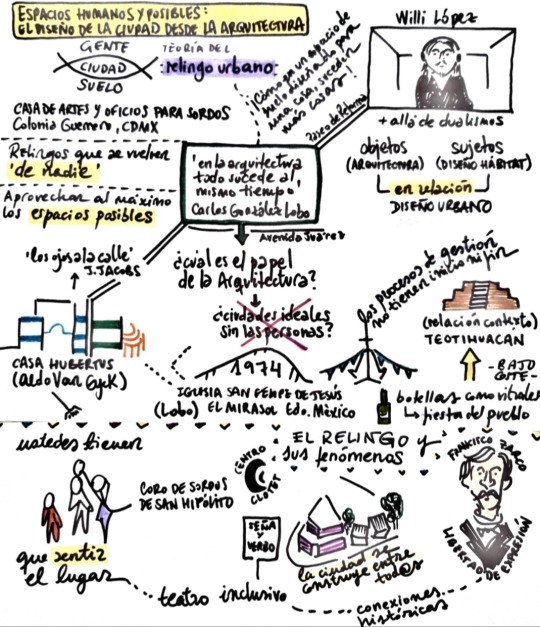 ESPACIOS HUMANOS Y POSIBLES:
EL DISEÑO DE LA CIUDAD DESDE LA ARQUITECTURA
GENTE
CIUDAD
SUELO
TEORÍA DEL
relingo urbano:
¡Cómo en un espacio de
suelo diseñado para
una cosa, suceden
más cosas!
Paseo de Reforma
Willi López
+ allá de dualismos
objetos
(ARQUITECTURA)
sujetos
(DISEÑO HÁBITAT)
en relación
DISEÑO URBANO
CASA DE ARTES Y OFICIOS PARA SORDOS
Colonia Guerrero, CDMX
Relingos que se vuelven
'de nadie'
Aprovechar al máximo
los espacios posibles
'en la arquitectura
todo sucede al
mismo tiempo'
Carlos González Lobo
Avenida Juárez
'los ojos a la calle'
J. JACOBS
¿cuál es el papel
de la Arquitectura?
¿ciudades ideales
sin las personas?
los procesos de gestión
no tienen inicio ni fin
(relación contexto)
TEOTIHUACAN
- BAJO
COSTE -
CASA HUBERTUS
(Aldo Van Eyck)
1974
IGLESIA SAN FELIPE DE JESÚS
(Lobo) EL MIRASOL Edo. México
botellas como vitrales
↳ fiesta del pueblo
ustedes tienen
que sentir
el lugar
CORO DE SORDOS
DE SAN HIPÓLITO
CENTRO
CLOTET
EL RELINGO y
sus fenómenos
SEÑA
Y
VERBO
teatro inclusivo
la ciudad se
construye entre
tod@s
conexiones
históricas
FRANCISCO ZARCO
LIBERTAD DE EXPRESIÓN